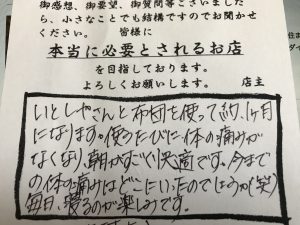 御感想、御要望、御質問等ございました
ら、小さなことでも結構ですのでお聞かせ
ください。 皆様に
本当に必要とされるお店
を目指しております。
よろしくお願いします。
店主
いとしやさんと布団を使って約1ヶ月
になります。使うたびに、体の痛みが
なくなり、朝がすごく快適です。今まで
の体の痛みはどこにいったのでしょうか(笑)
毎日、寝るのが楽しみです。